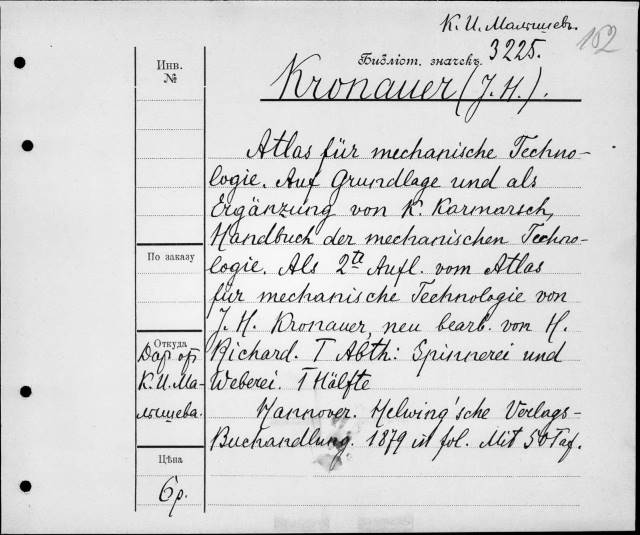 К. И. Малышевъ.
3225.
152
Инв.
№
Библіот. значекъ
Kronauer (J. H.).
Atlas für mechanische Techno-
logie. Auf Grundlage und als
Ergänzung von K. Karmarsch,
Handbuch der mechanischen Techno-
По заказу
logie. Als 2te Aufl. vom Atlas
für mechanische Technologie von
J. H. Kronauer, neu bearb. von H.
Откуда
Даръ отъ
К. И. Ма-
лышева.
Richard. I Abth: Spinnerei und
Weberei. I Hälfte
Hannover. Helwing'sche Verlags-
Buchandlung. 1879 in fol. Mit 50 Taf.
Цѣна
6 р.